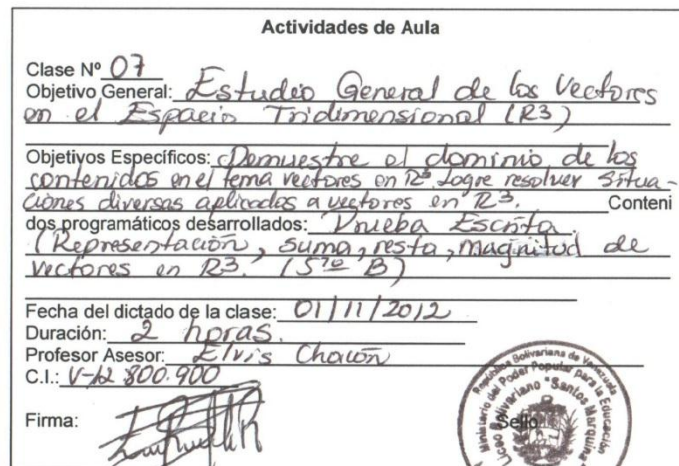 Actividades de Aula
Clase Nº 07
Objetivo General: Estudio General de los Vectores
en el Espacio Tridimensional (R3)
Objetivos Específicos: Demuestre el dominio de los
contenidos en el tema vectores en R3. Logre resolver Situa-
ciones diversas aplicadas a vectores en R3. Conteni
dos programáticos desarrollados: Prueba Escrita.
(Representación, suma, resta, magnitud de
vectores en R3. (5to B)
Fecha del dictado de la clase: 01/11/2012
Duración: 2 horas.
Profesor Asesor: Elvis Chacón
C.I.: V-12.800.900
Firma:
Sello
República Bolivariana de Venezuela
Ministerio del Poder Popular para la Educación
Liceo Bolivariano "Santos Marquina"